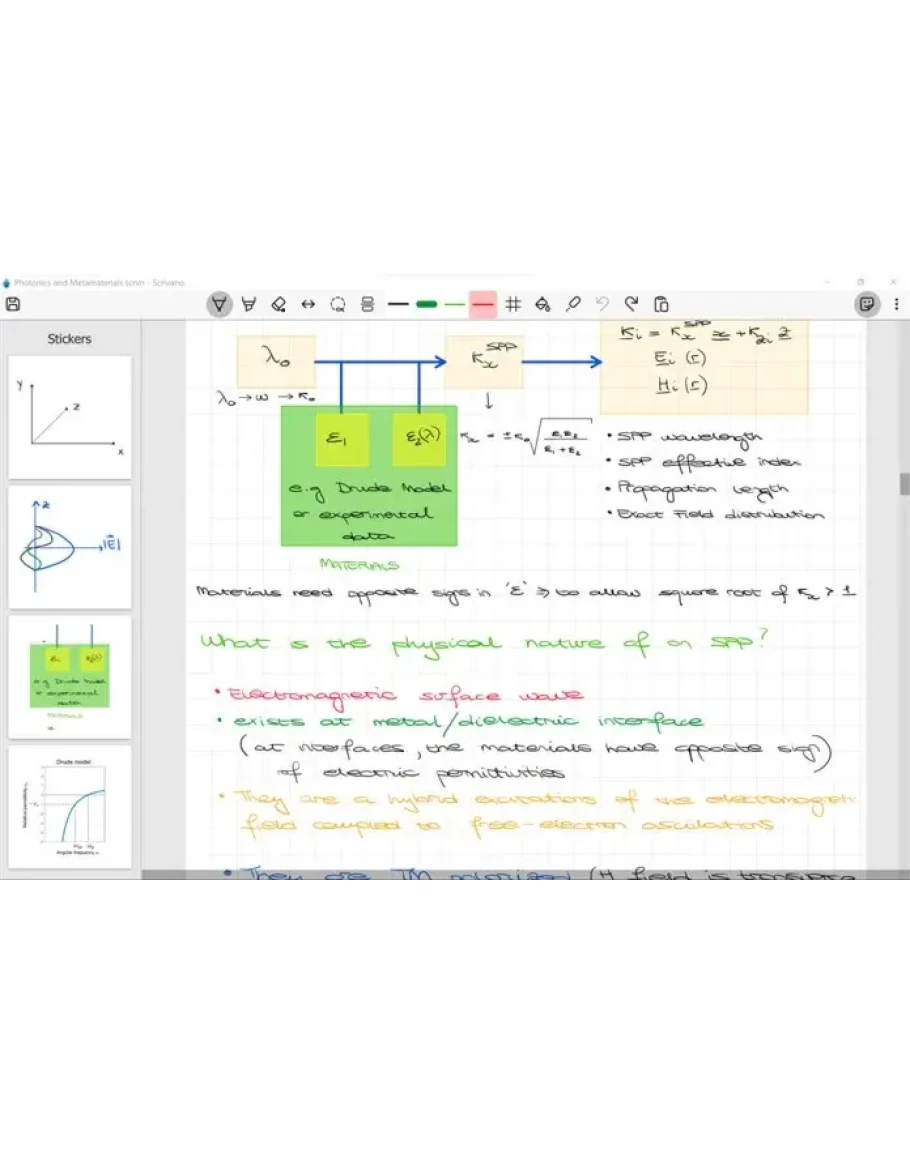 Photonics and Metamaterials.scrivn - Scrivano
Stickers
Y
Z
X
Z
|E|
ε1
ε2(λ)
e.g Drude Model
or experimental
MATERIALS
Drude model
Angular frequency ω
λ0
λ0 → ω → K0
Kx^SPP
Ki = Kx^SPP x + Kzi z
Ei (r)
Hi (r)
ε1
ε2(λ)
e.g Drude Model
or experimental
data
MATERIALS
Kx = ±K0 √(ε1ε2 / ε1+ε2)
• SPP wavelength
• SPP effective index
• Propagation length
• Exact Field distribution
Materials need opposite sign in 'ε' => to allow square root of Kx > 1
What is the physical nature of an SPP?
• Electromagnetic surface wave
• exists at metal/dielectric interface
(at interfaces, the materials have opposite sign)
of electric permittivities
• They are a hybrid excitations of the electromagnetic
field coupled to free-electron oscillations
• They are TM polarized (H field is transverse